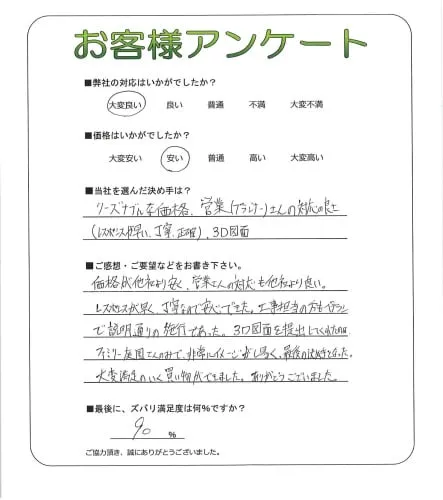 お客様アンケート
■弊社の対応はいかがでしたか?
大変良い 良い 普通 不満 大変不満
■価格はいかがでしたか?
大変安い 安い 普通 高い 大変高い
■当社を選んだ決め手は?
リーズナブルな価格、営業(プランナー)さんの対応の良さ
(レスポンスが早い、丁寧、正確)、3D図面
■ご感想・ご要望などをお書き下さい。
価格が他社より安く、営業さんの対応も他社より良い。
レスポンスが早く、丁寧なので安心できた。工事担当の方も
で説明通りの施行であった。3D図面を提出してくれたのは
ファミリー庭園さんのみで、非常にイメージがし易く、最後の決め手となった。
大変満足のいく買い物ができました。ありがとうございました。
■最後に、ズバリ満足度は何%ですか?
90 %
ご協力頂き、誠にありがとうございました。